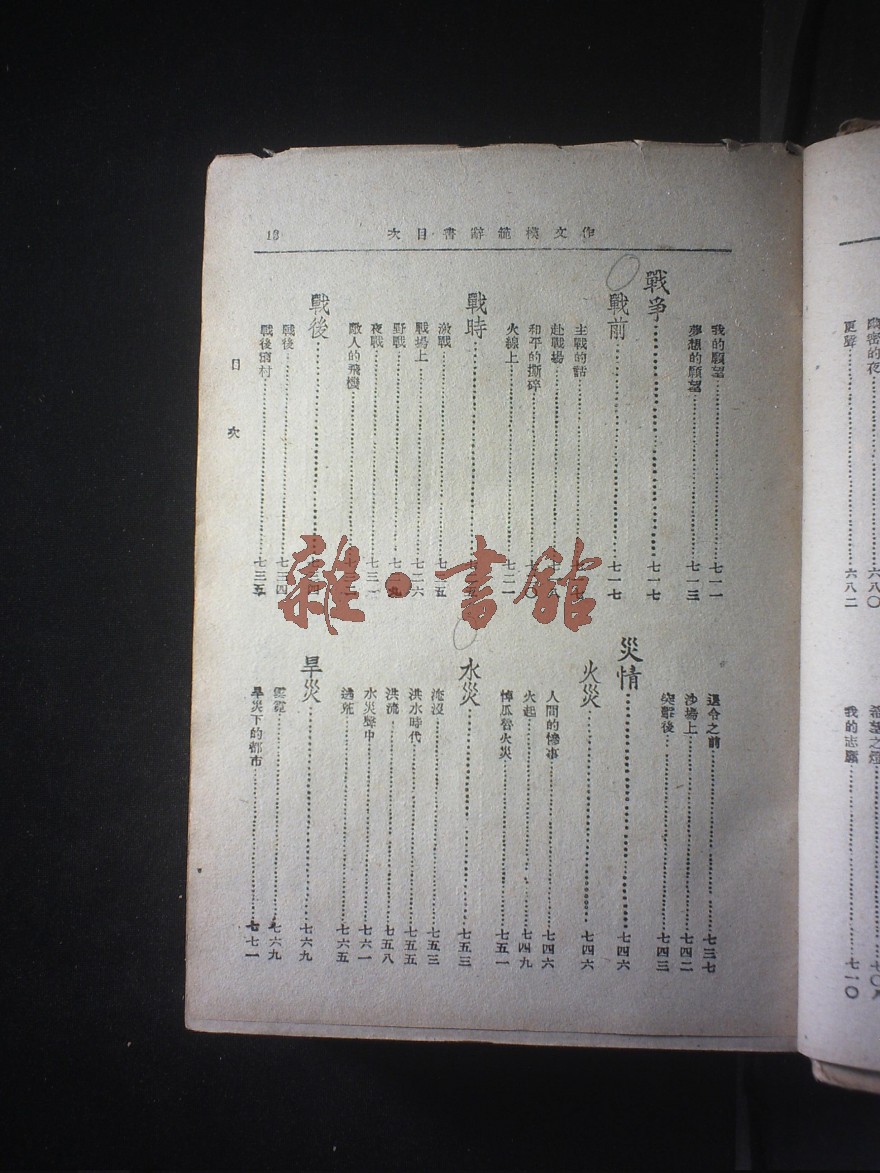 作文模範辭書目次
我的願望……七一一
夢想的願望……七一三
戰爭……七一七
戰前……七一七
主戰的話……
赴戰場……
和平的撕碎……
火線上……七二一
戰時……
激戰……
戰場上……七二六
野戰……
夜戰……七三一
敵人的飛機……
戰後……
戰後……七三四
戰後窮村……七三五
退令之前……七三七
沙場上……七四二
突擊後……七四三
災情……七四六
火災……七四六
人間的慘事……七四六
火起……七四九
火災……七五一
水災……七五三
淹沒……七五三
洪水時代……七五五
洪流……七五八
水災聲中……七六一
……七六五
旱災……七六九
雲霓……七六九
旱災下的都市……七七一
目次
的夜……六八〇
更聲……六八二
我的志願……七一〇
雜·書館